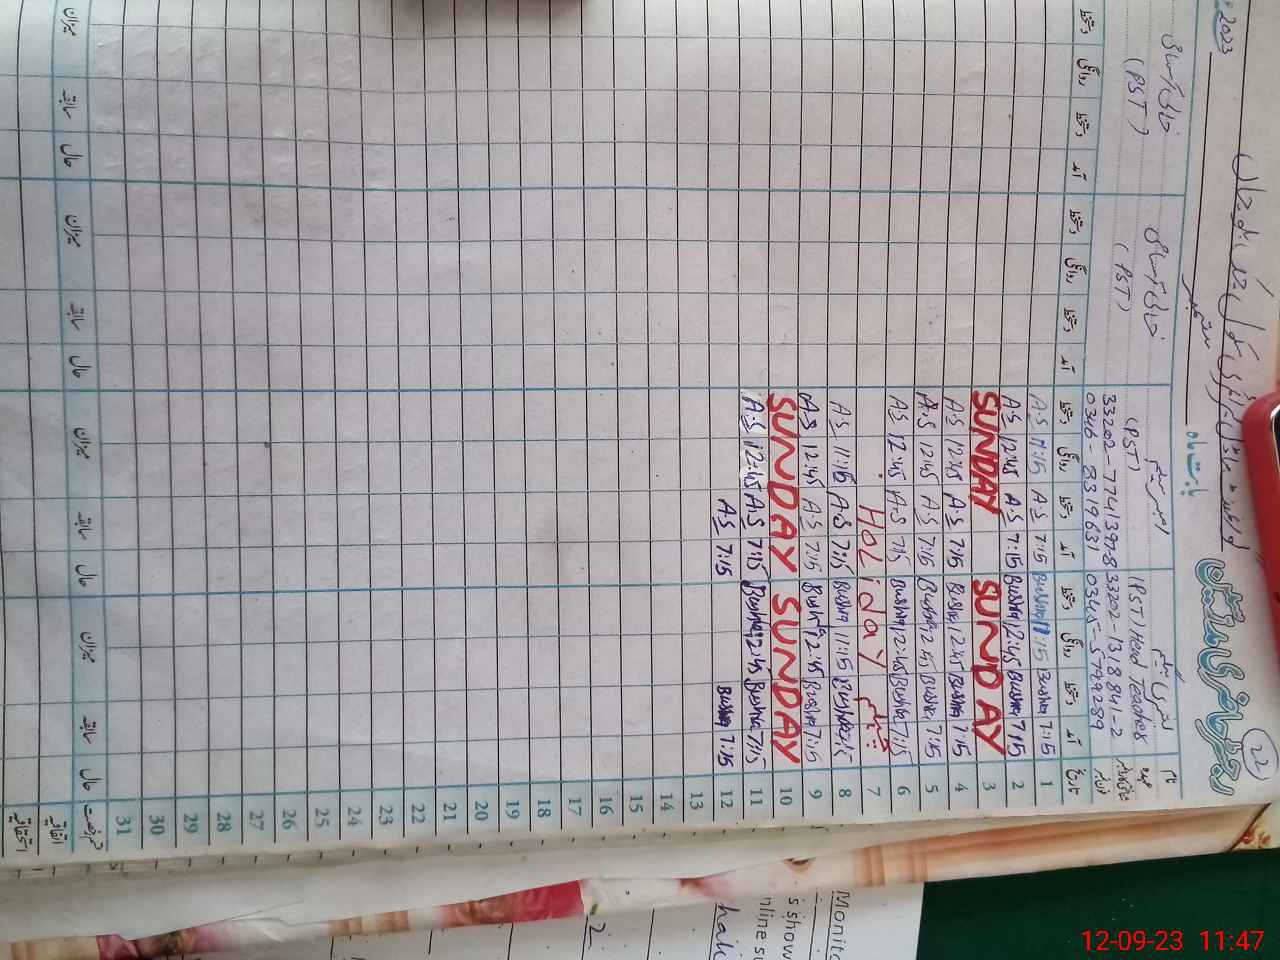 22
رجسٹر حاضری مدرسین
بابت ماہ ستمبر 2023
نام
عہدہ (PST) Head Teacher (PST) (PST) (PST)
شناختی کارڈ نمبر 33202-1318841-2 33202-7741397-8
فون نمبر 0345-5799289 0346-8319631
تاریخ آمد دستخط روانگی دستخط آمد دستخط روانگی دستخط آمد دستخط روانگی دستخط آمد دستخط روانگی دستخط
1 7:15 Bushra 11:15 Bushra 7:15 A.S 11:15 A.S
2 7:15 Bushra 12:45 Bushra 7:15 A.S 12:45 A.S
3 SUNDAY SUNDAY
4 7:15 Bushra 12:45 Bushra 7:15 A.S 12:45 A.S
5 7:15 Bushra 12:45 Bushra 7:15 A.S 12:45 A.S
6 7:15 Bushra 12:45 Bushra 7:15 A.S 12:45 A.S
7 Holiday
8 7:15 Bushra 11:15 Bushra 7:15 A.S 11:15 A.S
9 7:15 Bushra 12:45 Bushra 7:15 A.S 12:45 A.S
10 SUNDAY SUNDAY
11 7:15 Bushra 12:45 Bushra 7:15 A.S 12:45 A.S
12 7:15 Bushra 7:15 A.S
13
14
15
16
17
18
19
20
21
22
23
24
25
26
27
28
29
30
31
قسم رخصت حال سابقہ میزان حال سابقہ میزان حال سابقہ میزان حال سابقہ میزان
اتفاقیہ
استحقاقیہ
Monito
s show
nline s
hal
2
12-09-23 11:47